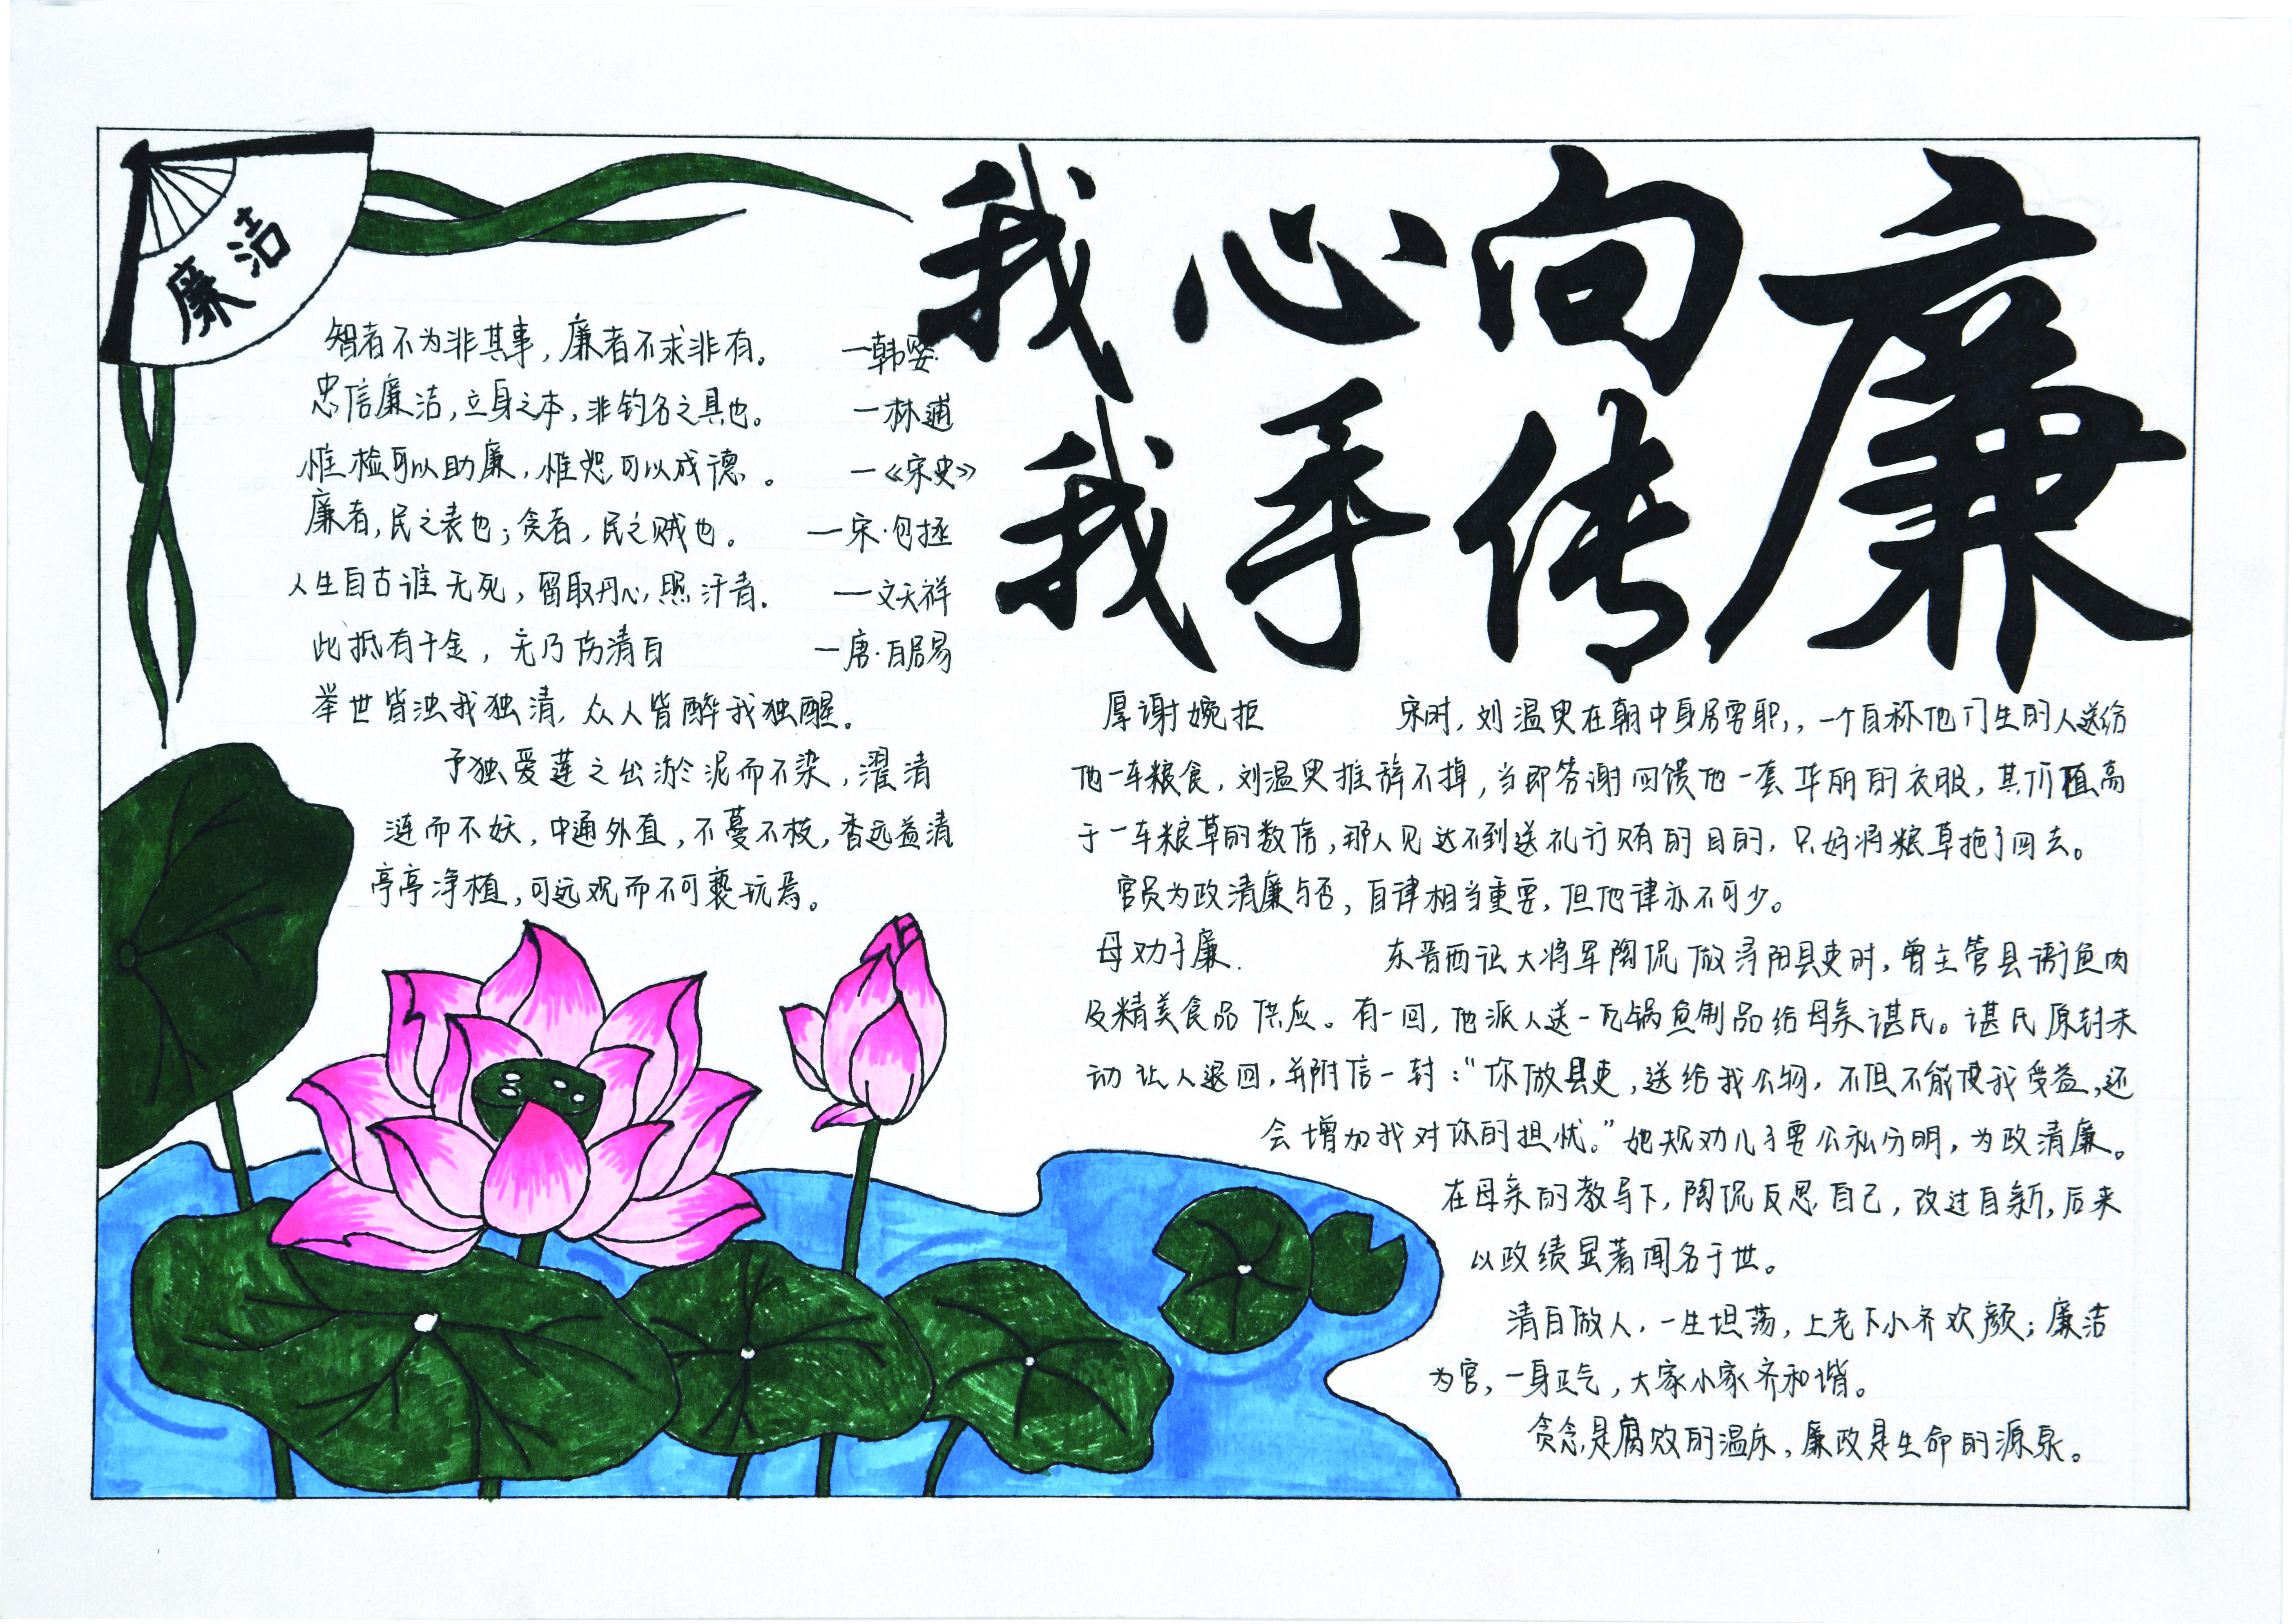 廉洁
我心向廉
我手传
智者不为非其事，廉者不求非有。 —韩婴
忠信廉洁，立身之本，非钓名之具也。 —林逋
惟检可以助廉，惟恕可以成德。 —《宋史》
廉者，民之表也；贪者，民之贼也。 —宋·包拯
人生自古谁无死，留取丹心照汗青。 —文天祥
此抵有千金，无乃伤清白 —唐·白居易
举世皆浊我独清，众人皆醉我独醒。
予独爱莲之出淤泥而不染，濯清
涟而不妖，中通外直，不蔓不枝，香远益清
亭亭净植，可远观而不可亵玩焉。
厚谢婉拒 宋时，刘温叟在朝中身居要职，，一个自称他门生的人送给
他一车粮食，刘温叟推辞不掉，当即答谢回馈他一套华丽的衣服，其价值高
于一车粮草的数倍，那人见达不到送礼行贿的目的，只好将粮草拖了回去。
官员为政清廉与否，自律相当重要，但他律亦不可少。
母劝子廉. 东晋西征大将军陶侃做浔阳县吏时，曾主管县衙鱼肉
及精美食品供应。有一回，他派人送一瓦锅鱼制品给母亲谌氏。谌氏原封未
动让人退回，并附信一封：“你做县吏，送给我公物，不但不能使我受益，还
会增加我对你的担忧。”她规劝儿子要公私分明，为政清廉。
在母亲的教导下，陶侃反思自己，改过自新，后来
以政绩显著闻名于世。
清白做人，一生坦荡，上老下小齐欢颜；廉洁
为官，一身正气，大家小家齐和谐。
贪念是腐败的温床，廉政是生命的源泉。